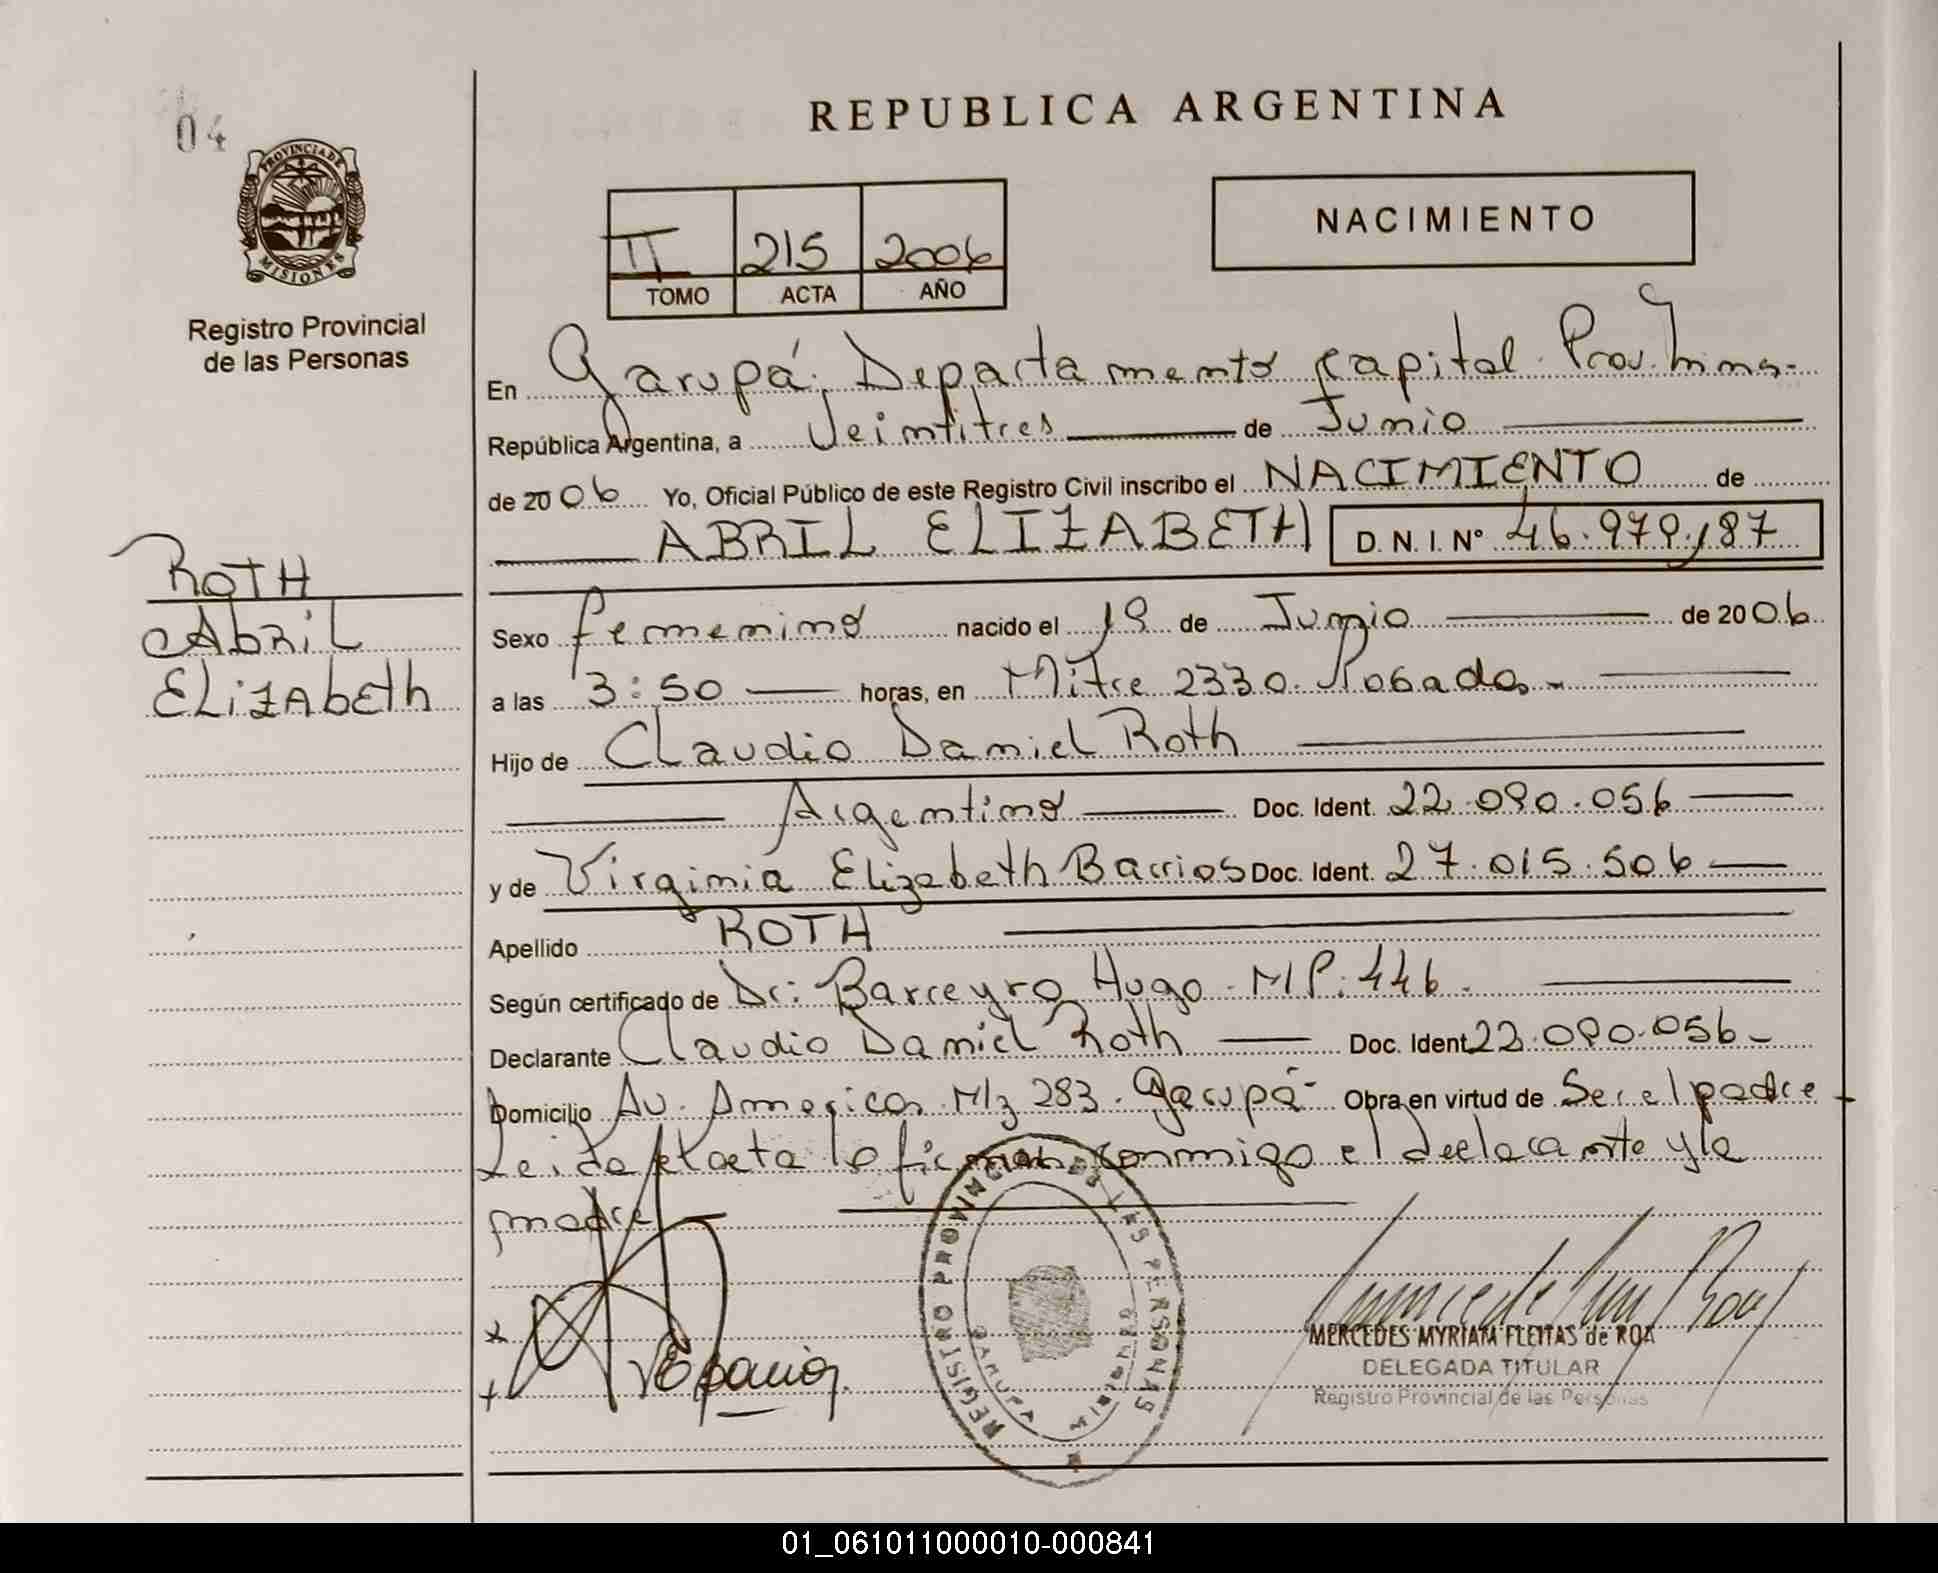 04
PROVINCIA DE
MISIONES
Registro Provincial
de las Personas
ROTH
Abril
Elizabeth
REPUBLICA ARGENTINA
II 215 2006
TOMO ACTA AÑO
NACIMIENTO
En Garupá. Departamento Capital. Prov. Mnes.-
República Argentina, a Veintitres de Junio
de 2006 Yo, Oficial Público de este Registro Civil inscribo el NACIMIENTO de
ABRIL ELIZABETH D.N.I.Nº 46.979.187
Sexo femenino nacido el 19 de Junio de 2006
a las 3:50 horas, en Mitre 2330. Posadas.-
Hijo de Claudio Daniel Roth
Argentino Doc. Ident. 22.090.056
y de Virginia Elizabeth Barrios Doc. Ident. 27.015.506
Apellido ROTH
Según certificado de Dr: Barreyro Hugo. MP: 446.
Declarante Claudio Daniel Roth Doc. Ident. 22.090.056-
Domicilio Av. Americas Mz 283. Garupá- Obra en virtud de Ser el padre
Leida el acta la firman conmigo el declarante y la
madre
REGISTRO PROVINCIAL DE LAS PERSONAS
GARUPA
MISIONES
MERCEDES MYRIAM FLEITAS de ROA
DELEGADA TITULAR
Registro Provincial de las Personas
01_061011000010-000841